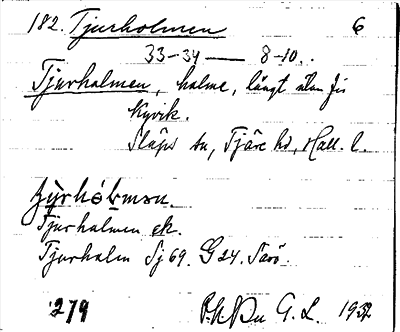 182. Tjurholmen 6
33-34 — 8-10.
Tjurholmen, holme, långt utom
Kyvik.
Släps sn, Fjäre hd, Hall. l.
Tjurholmen ek.
Tjurholm Sj 69. G 24. Särö.
279 G. L. 1932